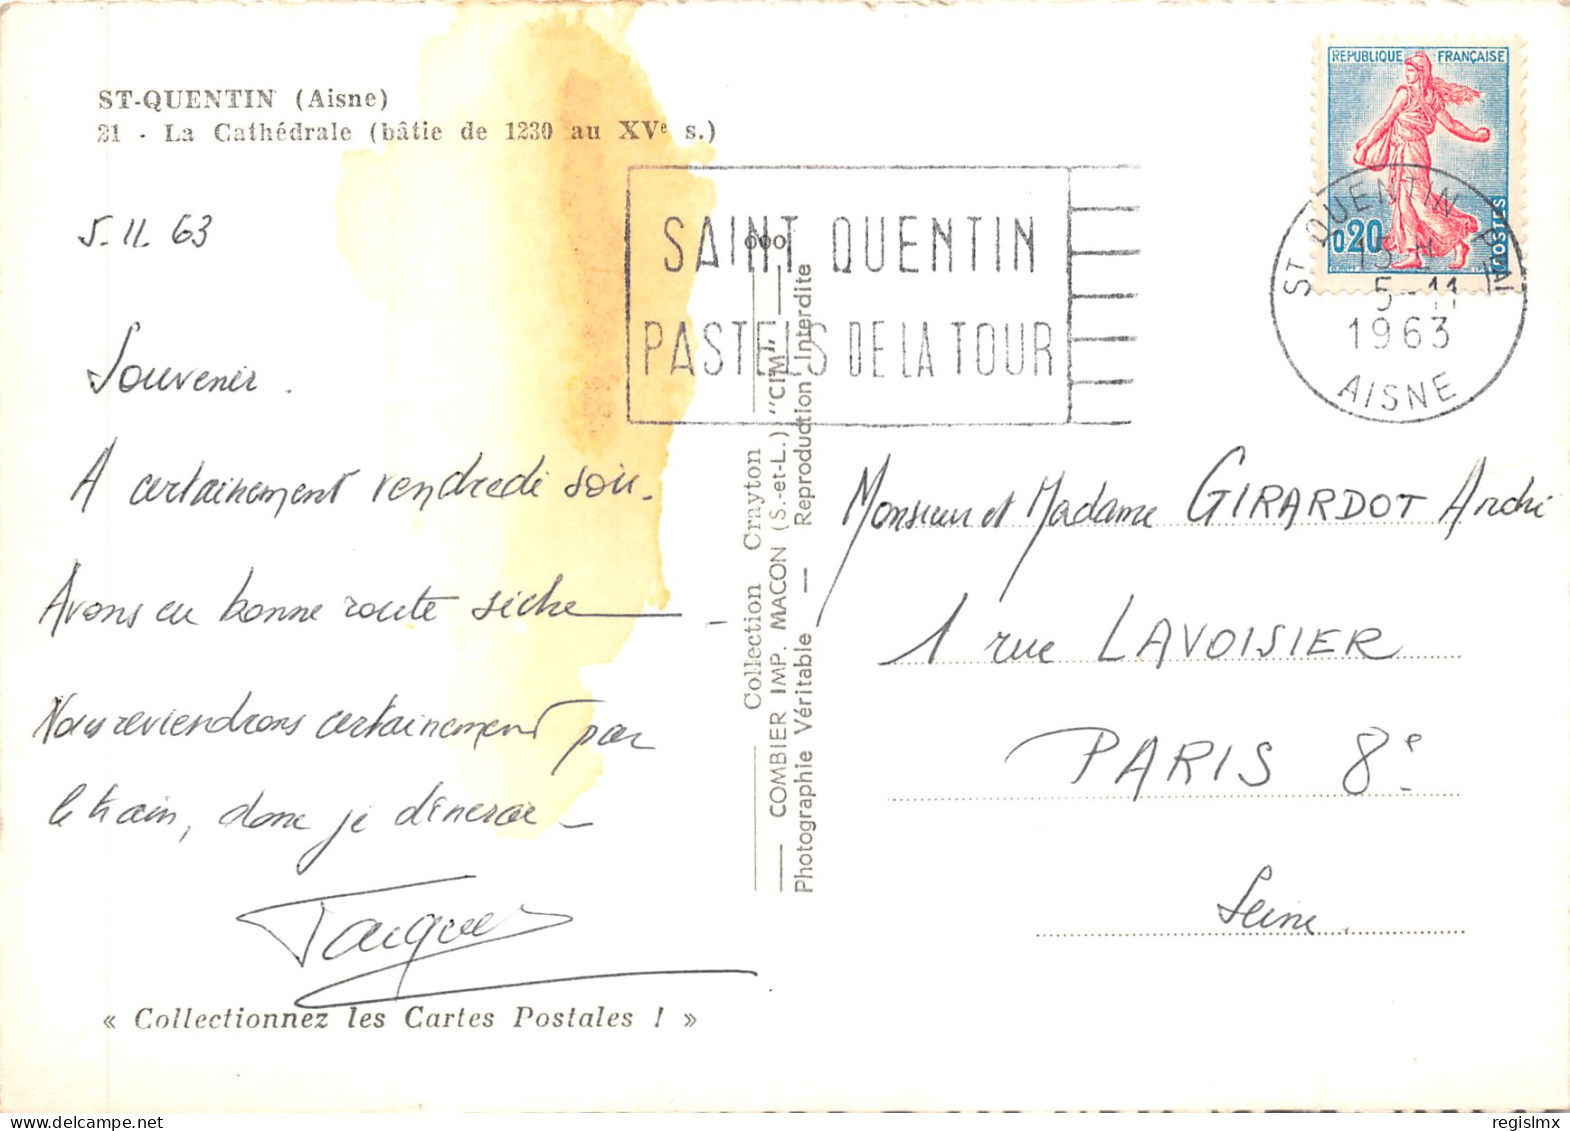 ST-QUENTIN (Aisne)
21 - La Cathédrale (bâtie de 1230 au XVe s.)
5.11.63
Souvenir.
A certainement vendredi soir.
Avons eu bonne route sèche —
Nous reviendrons certainement par
le train, donc je dînerai —
Jacques
« Collectionnez les Cartes Postales ! »
SAINT QUENTIN
PASTELS DE LA TOUR
Collection Crayton
COMBIER IMP. MACON (S.-et-L.) "CIM"
Photographie Véritable — Reproduction Interdite
REPUBLIQUE FRANÇAISE
0,20
POSTES
ST QUENTIN
5-11
1963
AISNE
Monsieur et Madame GIRARDOT André
1 rue LAVOISIER
PARIS 8e
Seine.
regislmx